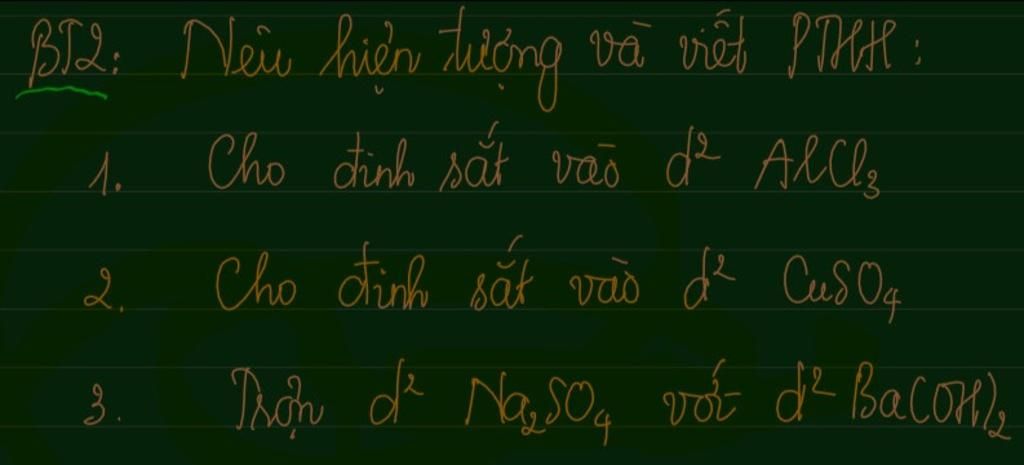 BT2: Nêu hiện tượng và viết PTHH:
1. Cho đinh sắt vào d² AlCl₃
2. Cho đinh sắt vào d² CuSO₄
3. Trộn d² Na₂SO₄ với d² Ba(OH)₂